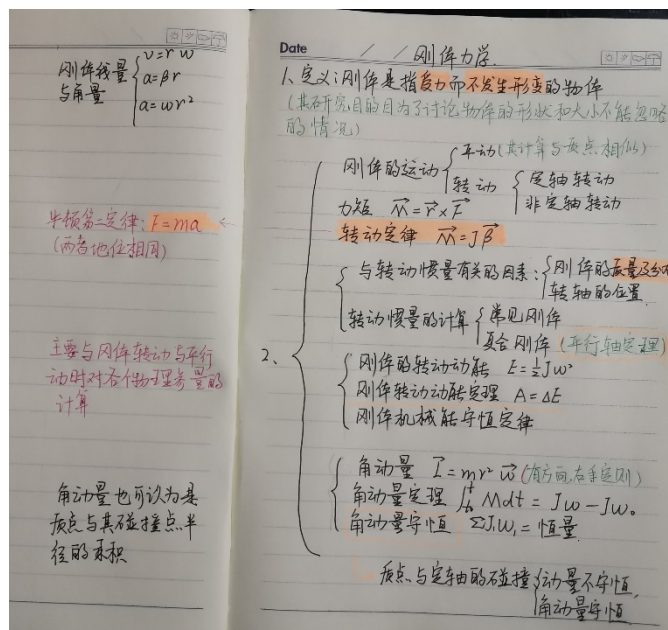 刚体线量
与角量
v=rω
a=βr
a=ωr²
牛顿第二定律：F=ma
(两者地位相同)
主要与刚体转动与平行
动时对各个物理量的
计算
角动量也可认为是
质点与其碰撞点半
径的乘积
Date / / 刚体力学.
1、定义：刚体是指受力而不发生形变的物体
(其研究目的目为了讨论物体的形状和大小不能忽略
的情况)
2、
刚体的运动
平动(其计算与质点相似)
转动
定轴转动
非定轴转动
力矩 M=r×F
转动定律 M=Jβ
与转动惯量有关的因素：
刚体的质量及分布
转轴的位置
转动惯量的计算
常见刚体
复合刚体 (平行轴定理)
刚体的转动动能 E=½Jω²
刚体转动动能定理 A=ΔE
刚体机械能守恒定律
角动量 L=mr²ω (有方向,右手定则)
角动量定理 ∫Mdt=Jω-Jω₀
角动量守恒 ΣJᵢωᵢ=恒量
质点与定轴的碰撞
动量不守恒,
角动量守恒